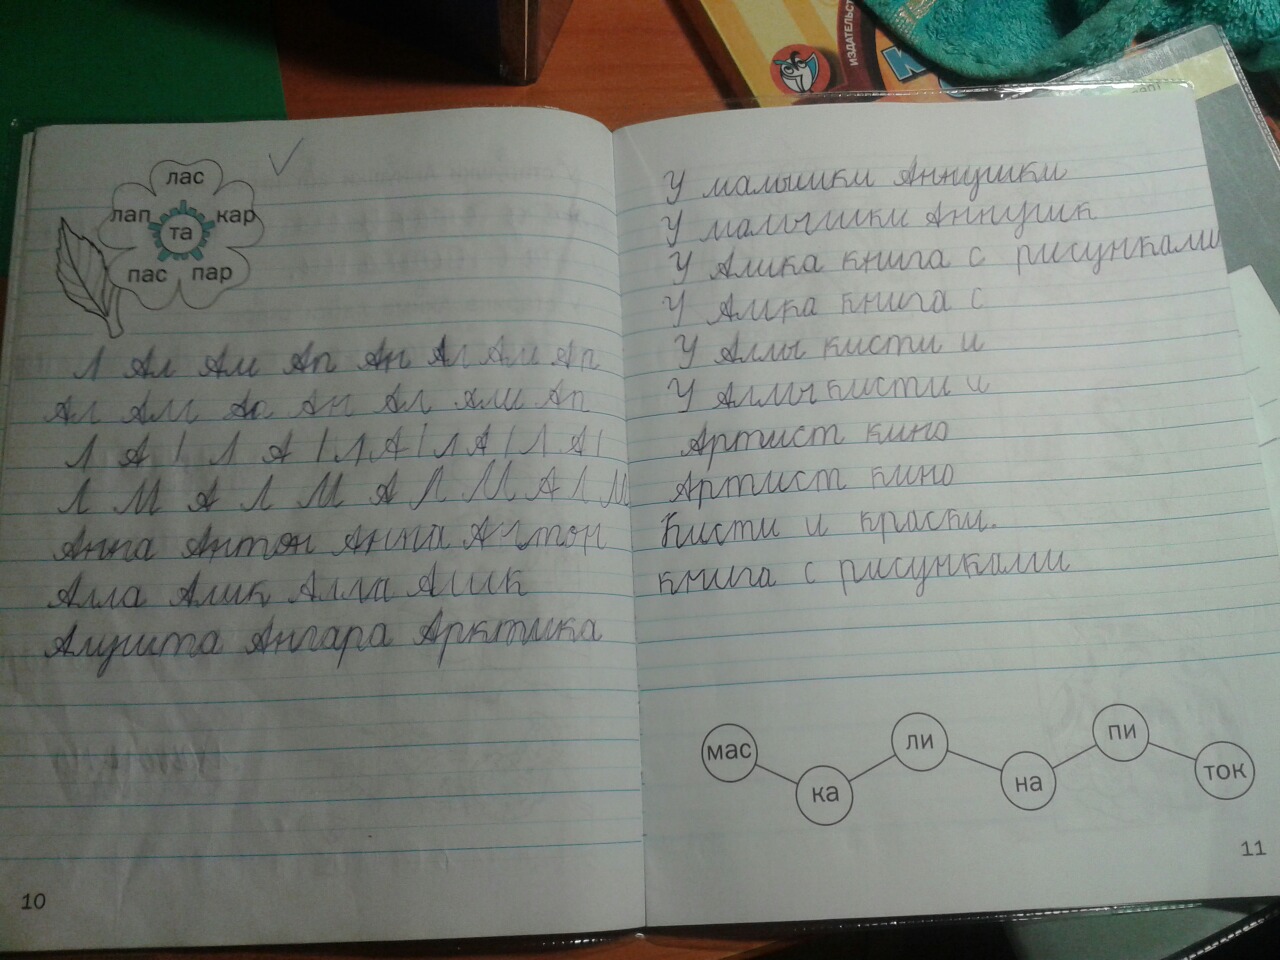 ИЗДАТЕЛЬСТ
лас
лап кар
та
пас пар
Л Ал Ам Ап Ан Ал Ам Ап
Ал Ам Ап Ан Ал Ам Ап
Л А / Л А / Л А / Л А / Л А /
Л М А Л М А Л М А Л М
Анна Антон Анна Антон
Алла Алик Алла Алик
Алушта Ангара Арктика
10
У малышки Аннушки
У малышки Аннушк
У Алика книга с рисунками
У Алика книга с
У Аллы кисти и
У Аллы кисти и
Артист кино
Артист кино
Кисти и краски.
книга с рисунками
мас ка ли на пи ток
11